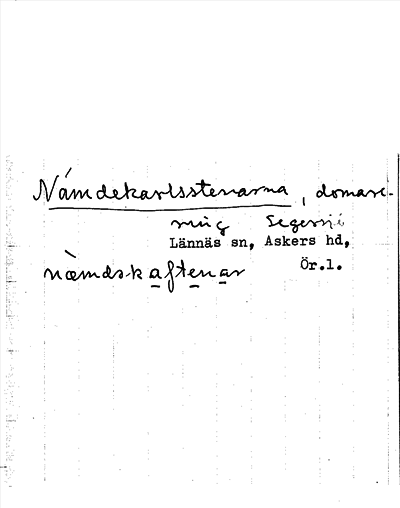 Nämdekarlsstenarna, domare-
ring Segersjö
Lännäs sn, Askers hd,
Ör.l.
næ̀mdskaftenar